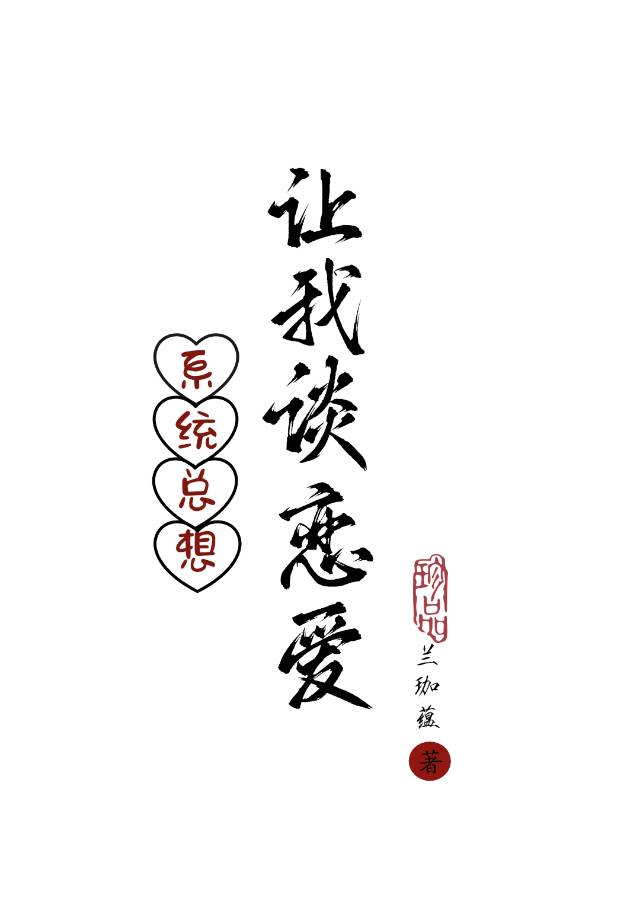 系统总想
让我谈恋爱
珍品
兰珈蕴
著